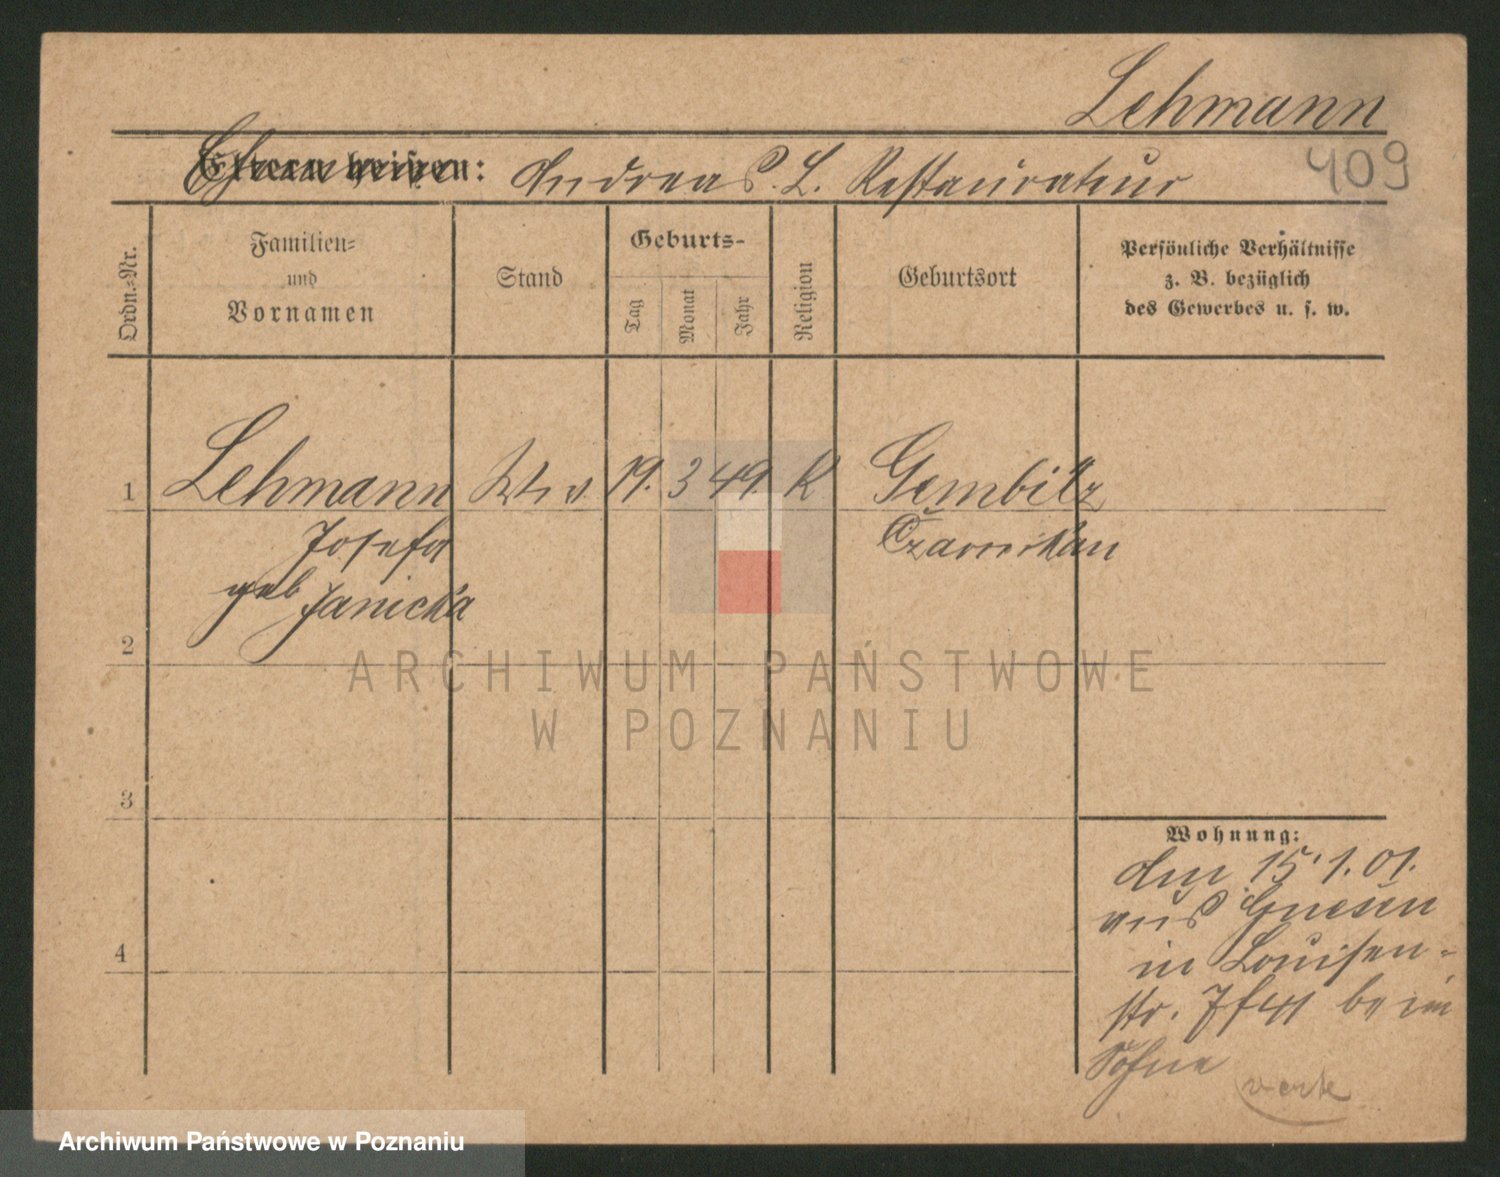 Lehmann
409
Eltern heißen: Andreas L. Restaurateur
Ordn.-Nr.
Familien-
und
Vornamen
Stand
Geburts-
Tag
Monat
Jahr
Religion
Geburtsort
Persönliche Verhältnisse
z. B. bezüglich
des Gewerbes u. s. w.
1 Lehmann Wwe 19. 3 49. K Gembitz
Josefa Czarnikau
geb Janicka
2
3
4
Wohnung:
den 15.1.01.
aus Gnesen
in Louisen-
str. beim
Sohne
ARCHIWUM PAŃSTWOWE
W POZNANIU
Archiwum Państwowe w Poznaniu